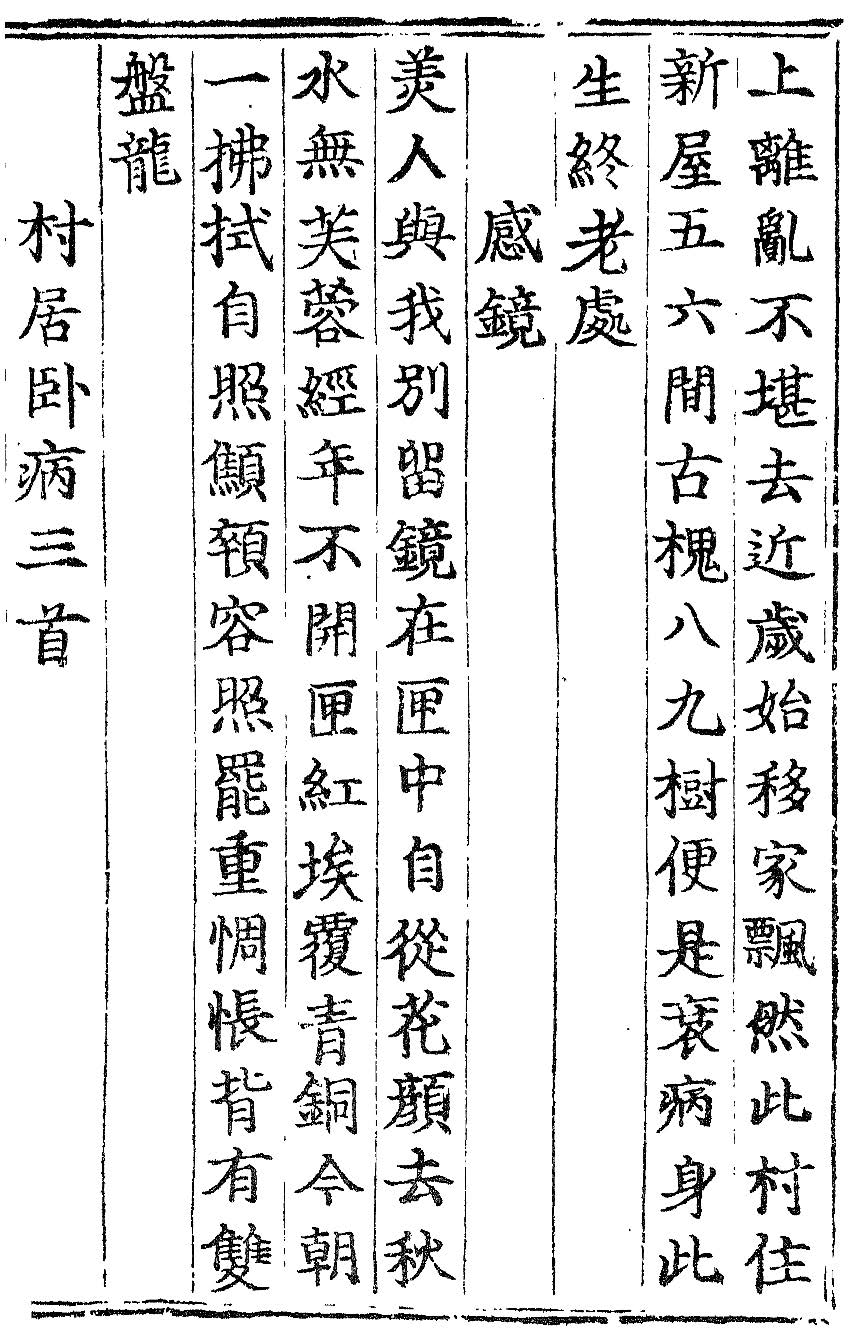 上離亂不堪去近歲始移家飄然此村住
新屋五六間古槐八九樹便是衰病身此
生終老處
感鏡
美人與我別留鏡在匣中自從花顏去秋
水無芙蓉經年不開匣紅埃覆青銅今朝
一拂拭自照顦顇容照罷重惆悵背有雙
盤龍
村居卧病三首